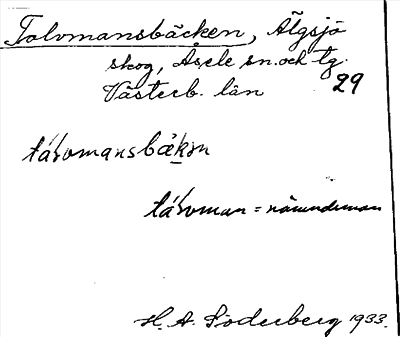 Tolvmansbäcken, Älgsjö
skog, Åsele sn. och tg.
Västerb. län 29
tólvmansbäkən
tólvman = nämndeman
H. A. Söderberg 1933.